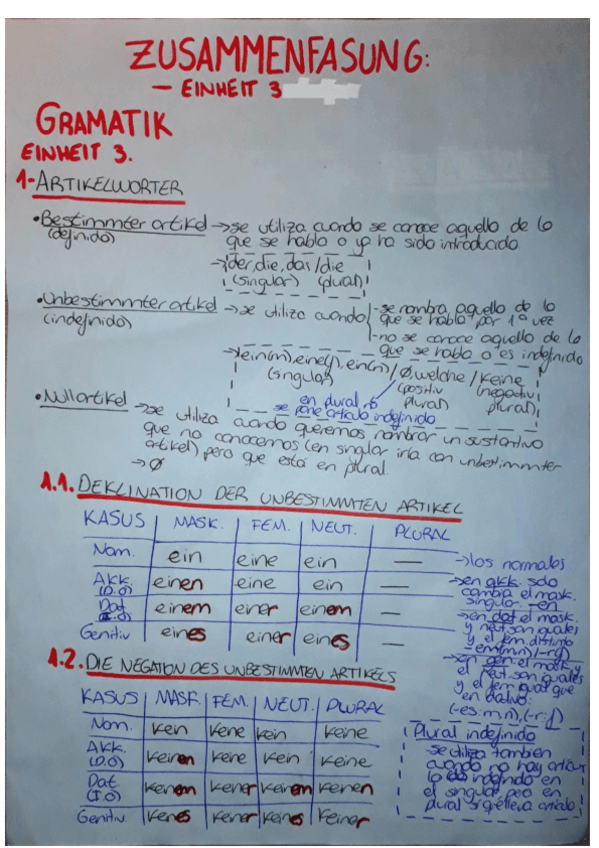 ZUSAMMENFASUNG:
— EINHEIT 3
GRAMATIK
EINHEIT 3.
1-ARTIKELWORTER
•Bestimmter artikel →se utiliza cuando se conoce aquello de lo
(definido) que se habla o ya ha sido introducido
→der, die, das/die
(singular) (plural)
•Unbestimmter artikel →se utiliza cuando -se nombra aquello de lo
(indefinido) que se habla por 1ª vez
-no se conoce aquello de lo
que se habla o es indefinido
→ein(m), eine(f), ein(n)/Ø, welche/keine
(singular) (positiv (negativ
plural) plural)
en plural no
se pone artículo indefinido
•Nullartikel →se utiliza cuando queremos nombrar un sustantivo
que no conocemos (en singular iría con unbestimmter
artikel) pero que está en plural.
→Ø
1.1. DEKLINATION DER UNBESTIMMTEN ARTIKEL
KASUS MASK. FEM. NEUT. PLURAL
Nom. ein eine ein —
Akk. (D.O) einen eine ein —
Dat (I.O) einem einer einem —
Genitiv eines einer eines —
→los normales
→en akk. solo
cambia el mask.
singular -en
→en dat el mask.
y neut son iguales
y el fem distinto
-em(mn)(-r f)
→en gen. el mask y
el neut son iguales
y el fem igual que
en dativo:
(-es: m,n), (-r: f)
1.2. DIE NEGATION DES UNBESTIMMTEN ARTIKELS
KASUS MASK. FEM. NEUT. PLURAL
Nom. kein keine kein keine
Akk. (D.O) keinen keine kein keine
Dat (I.O) keinem keiner keinem keinen
Genitiv. keines keiner keines keiner
Plural indefinido
se utiliza también
cuando no hay artículo
indefinido en
el singular pero en
plural sí q lleva artículo